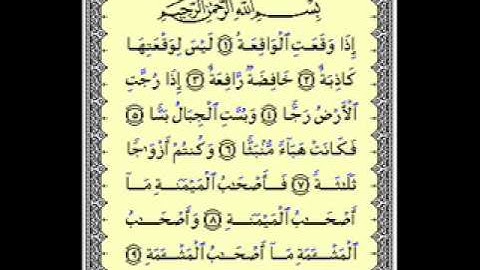 بِسْمِ ٱللَّهِ ٱلرَّحْمَٰنِ ٱلرَّحِيمِ
إِذَا وَقَعَتِ ٱلْوَاقِعَةُ ١ لَيْسَ لِوَقْعَتِهَا
كَاذِبَةٌ ٢ خَافِضَةٌ رَّافِعَةٌ ٣ إِذَا رُجَّتِ
ٱلْأَرْضُ رَجًّا ٤ وَبُسَّتِ ٱلْجِبَالُ بَسًّا ٥
فَكَانَتْ هَبَآءً مُّنۢبَثًّا ٦ وَكُنتُمْ أَزْوَٰجًا
ثَلَٰثَةً ٧ فَأَصْحَٰبُ ٱلْمَيْمَنَةِ مَآ
أَصْحَٰبُ ٱلْمَيْمَنَةِ ٨ وَأَصْحَٰبُ
ٱلْمَشْـَٔمَةِ مَآ أَصْحَٰبُ ٱلْمَشْـَٔمَةِ ٩